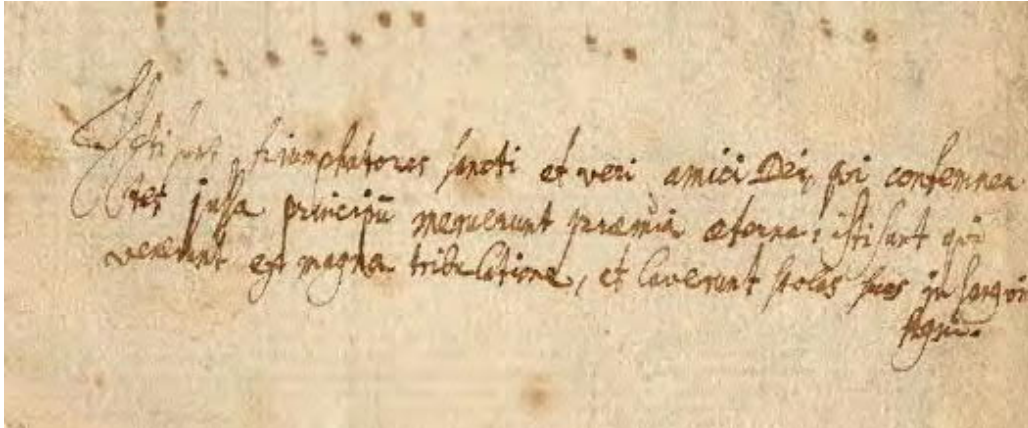 Isti sunt triumphatores sancti et veri amici Dei, qui contemnen
tes jussa principũ meruerunt praemia æterna: isti sunt qui
venerunt ex magna tribulatione, et laverunt stolas suas in sangui
Agni.